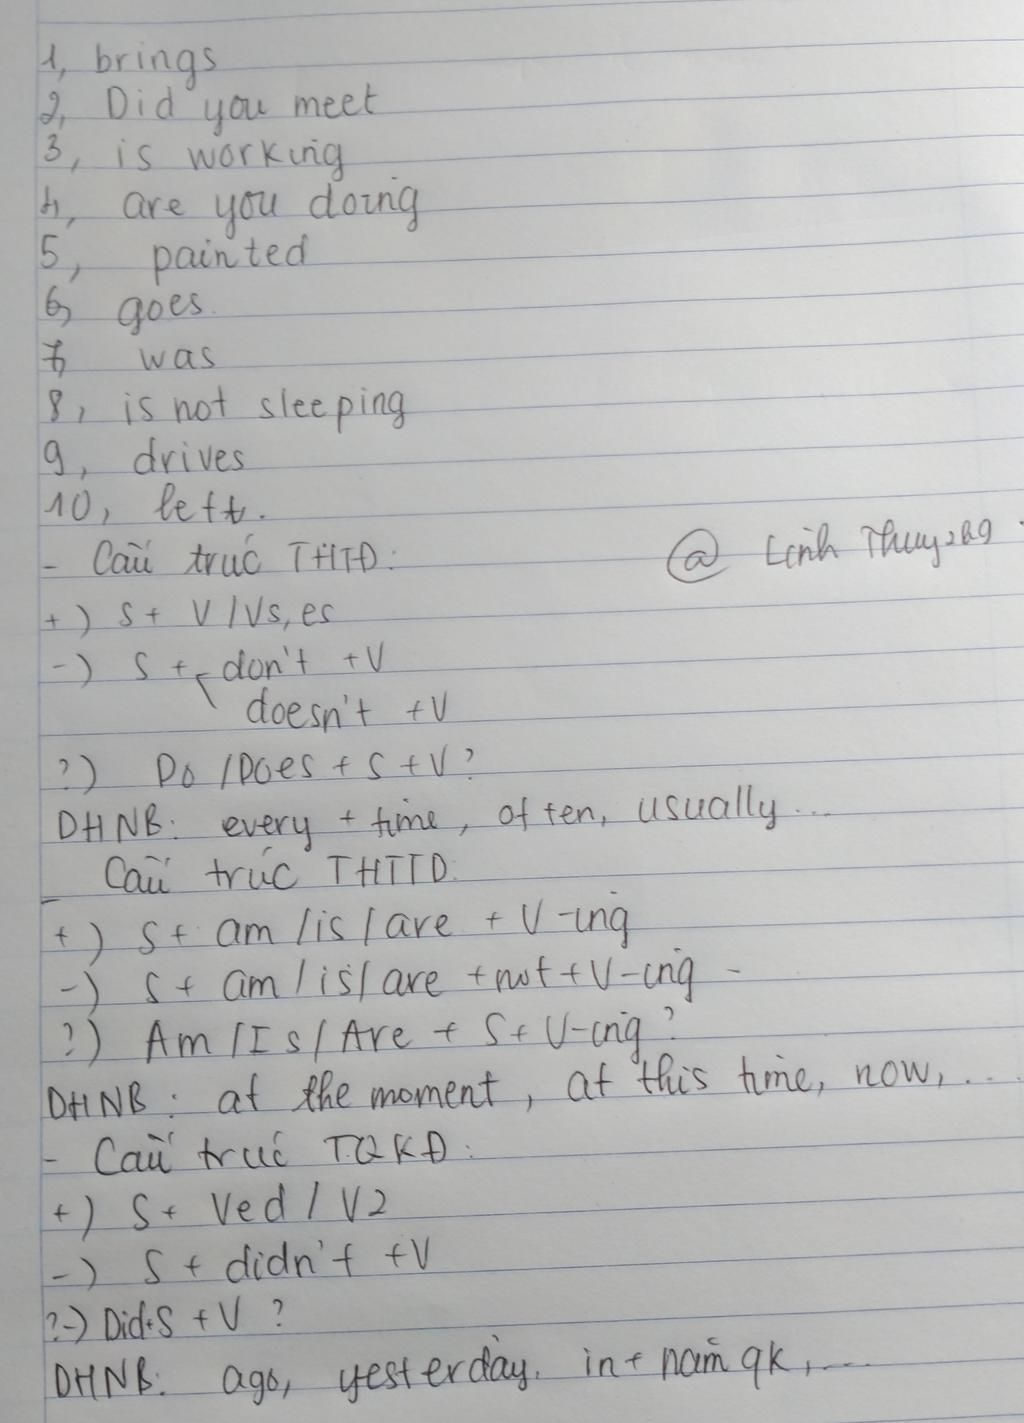 1, brings
2, Did you meet
3, is working
4, are you doing
5, painted
6, goes.
7, was
8, is not sleeping
9, drives
10, left.
- Cấu trúc THTĐ:
@ Linh Thuy
+) S + V / Vs, es
-) S + don't + V
doesn't + V
?) Do / Does + S + V?
DHNB: every + time, often, usually...
- Cấu trúc THTTD:
+) S + am / is / are + V-ing
-) S + am / is / are + not + V-ing -
?) Am / Is / Are + S + V-ing?
DHNB: at the moment, at this time, now,...
- Cấu trúc TQKĐ:
+) S + Ved / V2
-) S + didn't + V
?-) Did + S + V ?
DHNB: ago, yesterday. in + năm qk,...